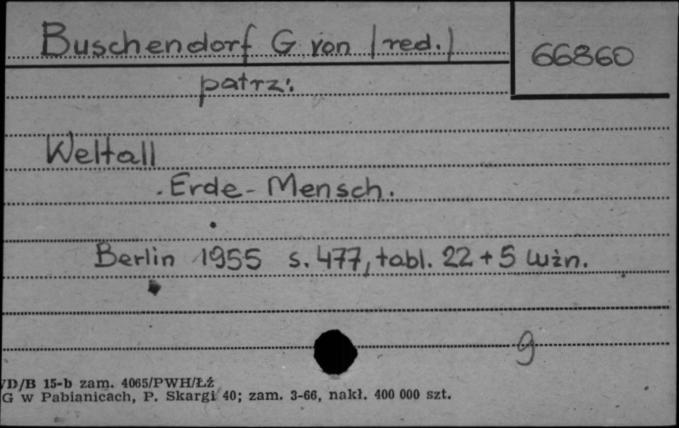 Buschendorf G von /red./
66860
patrz:
Weltall
- Erde - Mensch.
Berlin 1955 s. 477, tabl. 22 + 5 luźn.
9
VD/B 15-b zam. 4065/PWH/Łź
G w Pabianicach, P. Skargi 40; zam. 3-66, nakł. 400 000 szt.